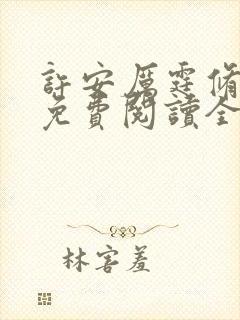 許安厲霆脩
免費閱讀全
林害羞